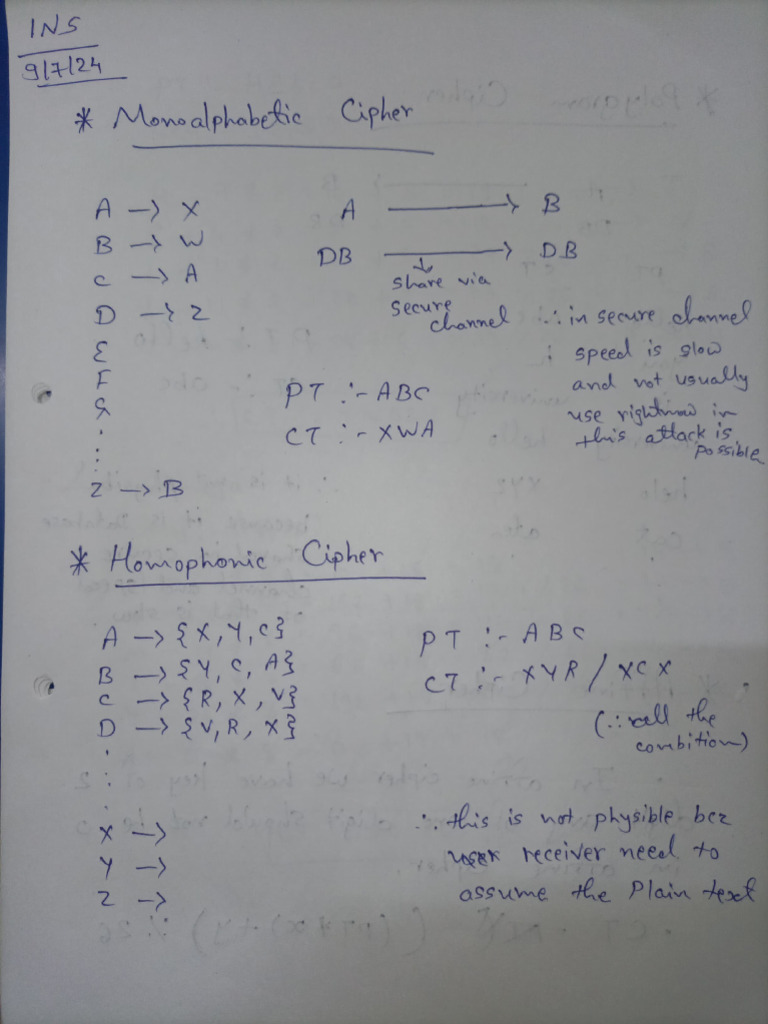 INS
9/7/24
* Monoalphabetic Cipher
A → X
B → W
C → A
D → Z
E
F
G
.
:
Z → B
A → B
DB → DB
share via
secure
channel
∴ in secure channel
speed is slow
and not usually
use rightnow in
this attack is
possible
PT :- ABC
CT :- XWA
* Homophonic Cipher
A → {X, Y, C}
B → {Y, C, A}
C → {R, X, V}
D → {V, R, X}
.
:
.
X →
Y →
Z →
PT :- ABC
CT :- XYR / XCX
(∴ all the
combition)
∴ this is not physible bcz
receiver need to
assume the Plain text